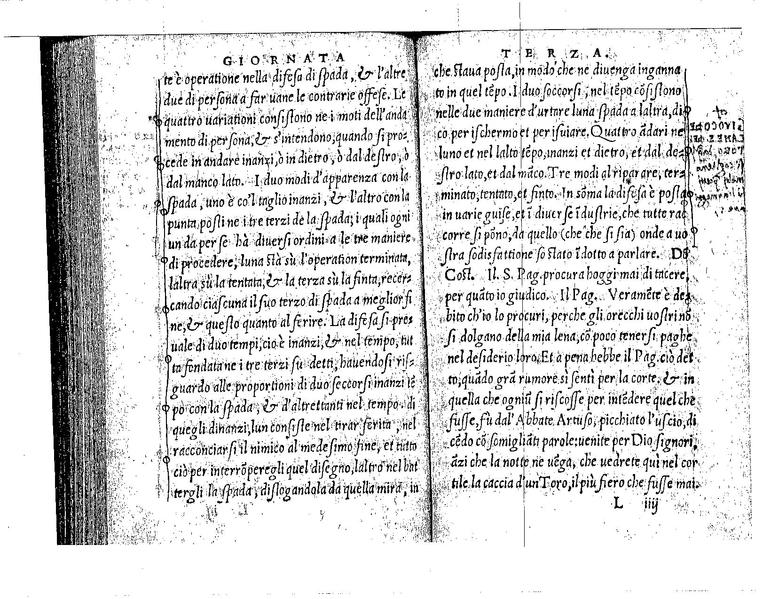 GIORNATA
te è operatione nella difesa di spada, & l'altre
due di persona a far uane le contrarie offese. Le
quattro uariationi consistono ne i moti dell'anda
mento di persona, & s'intendono, quando si pro-
cede in andare inanzi, ò in dietro, ò dal destro, ò
dal manco lato. I duo modi d'apparenza con la
spada, uno è co'l taglio inanzi, & l'altro con la
punta posti ne i tre terzi de la spada; i quali ogni
un da per se hà diuersi ordini a le tre maniere
di procedere, luna stà sù l'operation terminata,
laltra sù la tentata, & la terza sù la finta, recer-
cando ciascuna il suo terzo di spada a meglior fi
ne, & questo quanto al ferire. La difesa si pre-
uale di duo tempi, cio è inanzi, & nel tempo, tut
ta fondata ne i tre terzi su detti, hauendosi ris-
guardo alle proportioni di duo soccorsi inanzi tē
po con la spada, & d'altrettanti nel tempo di
quegli dinanzi, lun consiste nel tirar ferita, nel
racconciarsi il nimico al medesimo fine, et tutto
ciò per interrōperegli quel disegno, laltro nel bat
tergli la spada, dislogandola da quella mira, in
TERZA.
che staua posta, in modo che ne diuenga inganna
to in quel tēpo. I duo soccorsi, nel tēpo cōsistono
nelle due maniere d'urtare luna spada a laltra, di
co per ischermo et per isuiare. Quattro ādari ne
luno et nel lalto tēpo, inanzi et dietro, et dal de-
stro lato, et dal māco. Tre modi al riparare, ter-
minato, tentato, et finto. In sōma la difesa è posta
in uarie guise, et ī diuerse īdustrie, che tutte rac
corre si pōno, da quello (che che si sia) onde a uo
stra sodisfattione so stato īdotto a parlare. Do
Cost. Il S. Pag. procura hoggi mai di tacere,
per quāto io giudico. Il Pag. Veramēte è de-
bito ch'io lo procuri, perche gli orecchi uostri nō
si dolgano della mia lena, cō poco tenersi paghe
nel desiderio loro. Et a pena hebbe il Pag. ciò det
to, quādo grā rumore si sentì per la corte, & in
quella che ogniū si riscosse per intēdere quel che
fusse, fù dal'Abbate Artuso, picchiato l'uscio, di
cēdo cō somigliāti parole; uenite per Dio signori,
āzi che la notte ne uēga, che uedrete quì nel cor
tile la caccia d'un Toro, il più fiero che fusse mai.
L iiij